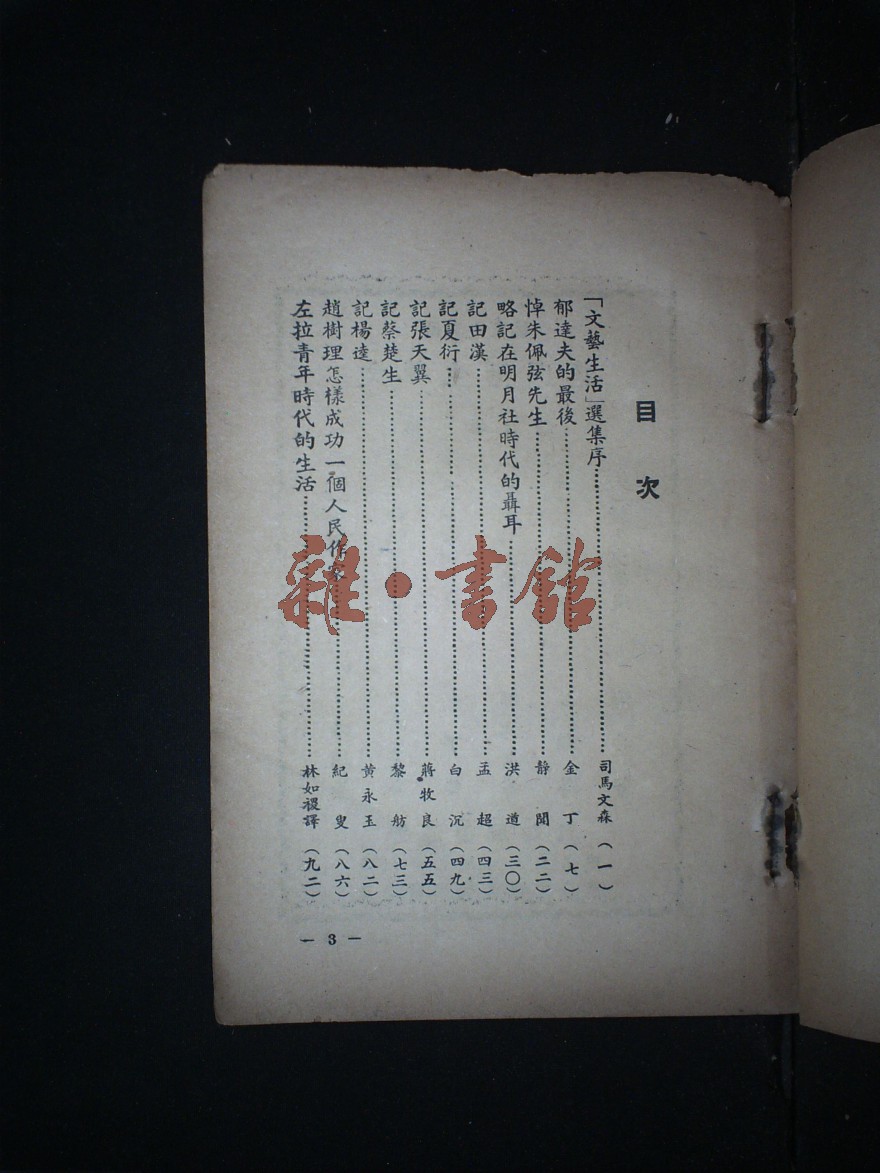 目次
「文藝生活」選集序……司馬文森（一）
郁達夫的最後……金丁（七）
悼朱佩弦先生……靜聞（二二）
略記在明月社時代的聶耳……洪遒（三〇）
記田漢……孟超（四三）
記夏衍……白沉（四九）
記張天翼……蔣牧良（五五）
記蔡楚生……黎舫（七三）
記楊逵……黃永玉（八二）
趙樹理怎樣成功一個人民作家……紀叟（八六）
左拉青年時代的生活……林如稷譯（九二）
— 3 —
雜·書館